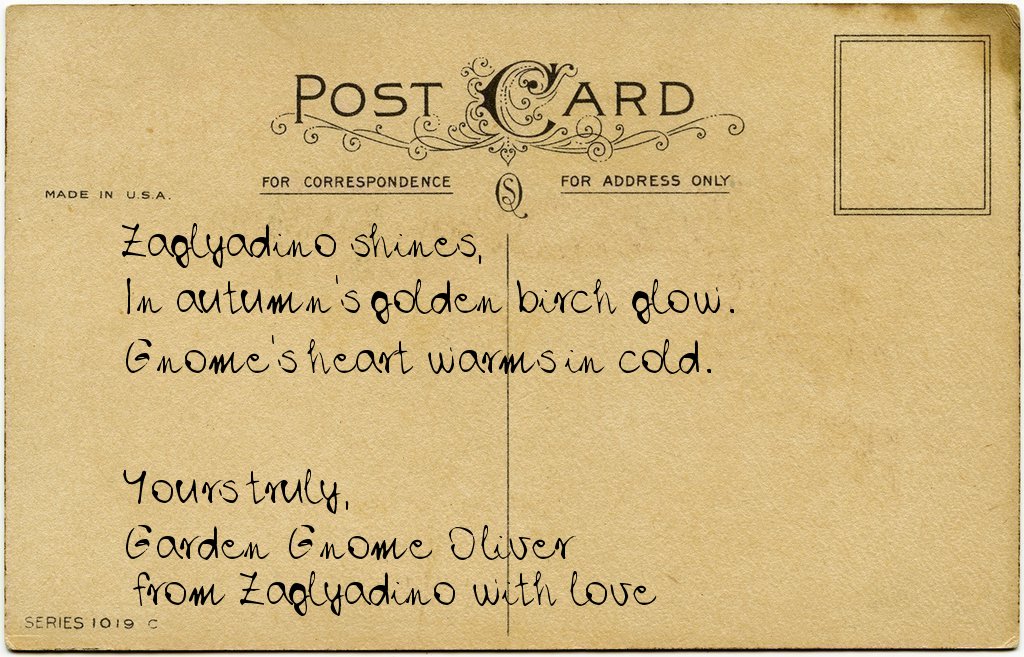 POST CARD
FOR CORRESPONDENCE
FOR ADDRESS ONLY
MADE IN U.S.A.
Zaglyadino shines,
In autumn's golden birch glow.
Gnome's heart warms in cold.
Yours truly,
Garden Gnome Oliver
from Zaglyadino with love
SERIES 1019 C